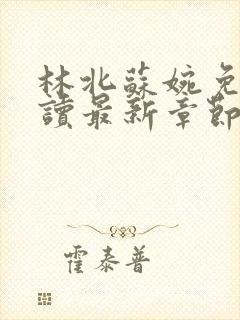 林北蘇婉免
讀最新章節
霍泰普